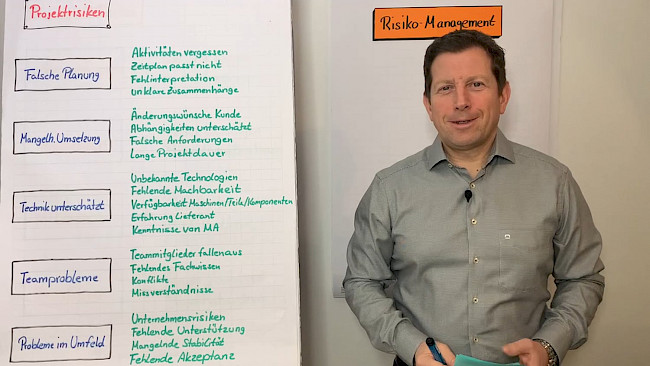 Projektrisiken
Falsche Planung
Aktivitäten vergessen
Zeitplan passt nicht
Fehlinterpretation
unklare Zusammenhänge
Mangelh. Umsetzung
Änderungswünsche Kunde
Abhängigkeiten unterschätzt
Falsche Anforderungen
Lange Projektdauer
Technik unterschätzt
Unbekannte Technologien
Fehlende Machbarkeit
Verfügbarkeit Maschinen/Teile/Komponenten
Erfahrung Lieferant
Kenntnisse von MA
Teamprobleme
Teammitglieder fallen aus
Fehlendes Fachwissen
Konflikte
Missverständnisse
Probleme im Umfeld
Unternehmensrisiken
Fehlende Unterstützung
Mangelnde Stabilität
Fehlende Akzeptanz
Risiko-Management